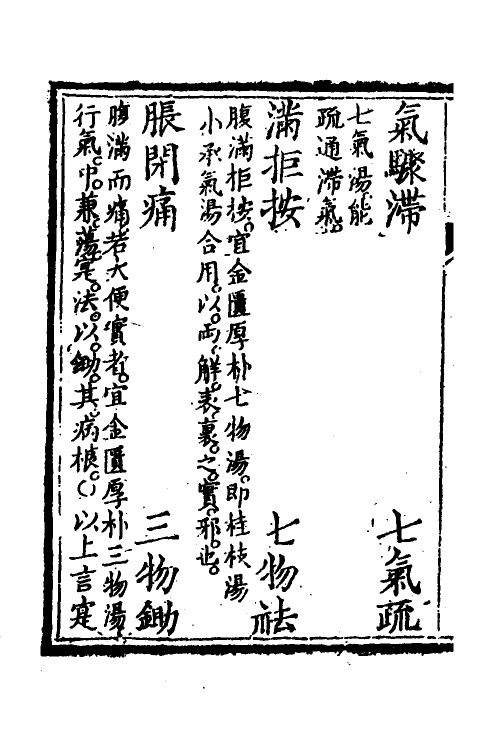 氣驟滯　七氣疏
七氣湯能
疏通滯氣
滿拒按　七物祛
腹滿拒按。宜金匱厚朴七物湯。即桂枝湯
小承氣湯合用。以。兩。解。表。裏。之。實。邪。也。
脹閉痛　三物鋤
腹滿而痛。若大便實者。宜金匱厚朴三物湯。
行氣。中。兼。蕩。寔。法。以。鋤。其。病。根。（）以上言寔